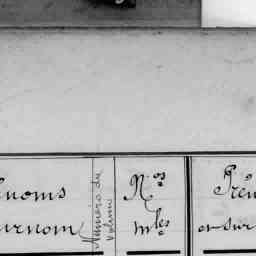 énoms
urnom
Numéro du
volume
Nos
mles
Prén
et sur